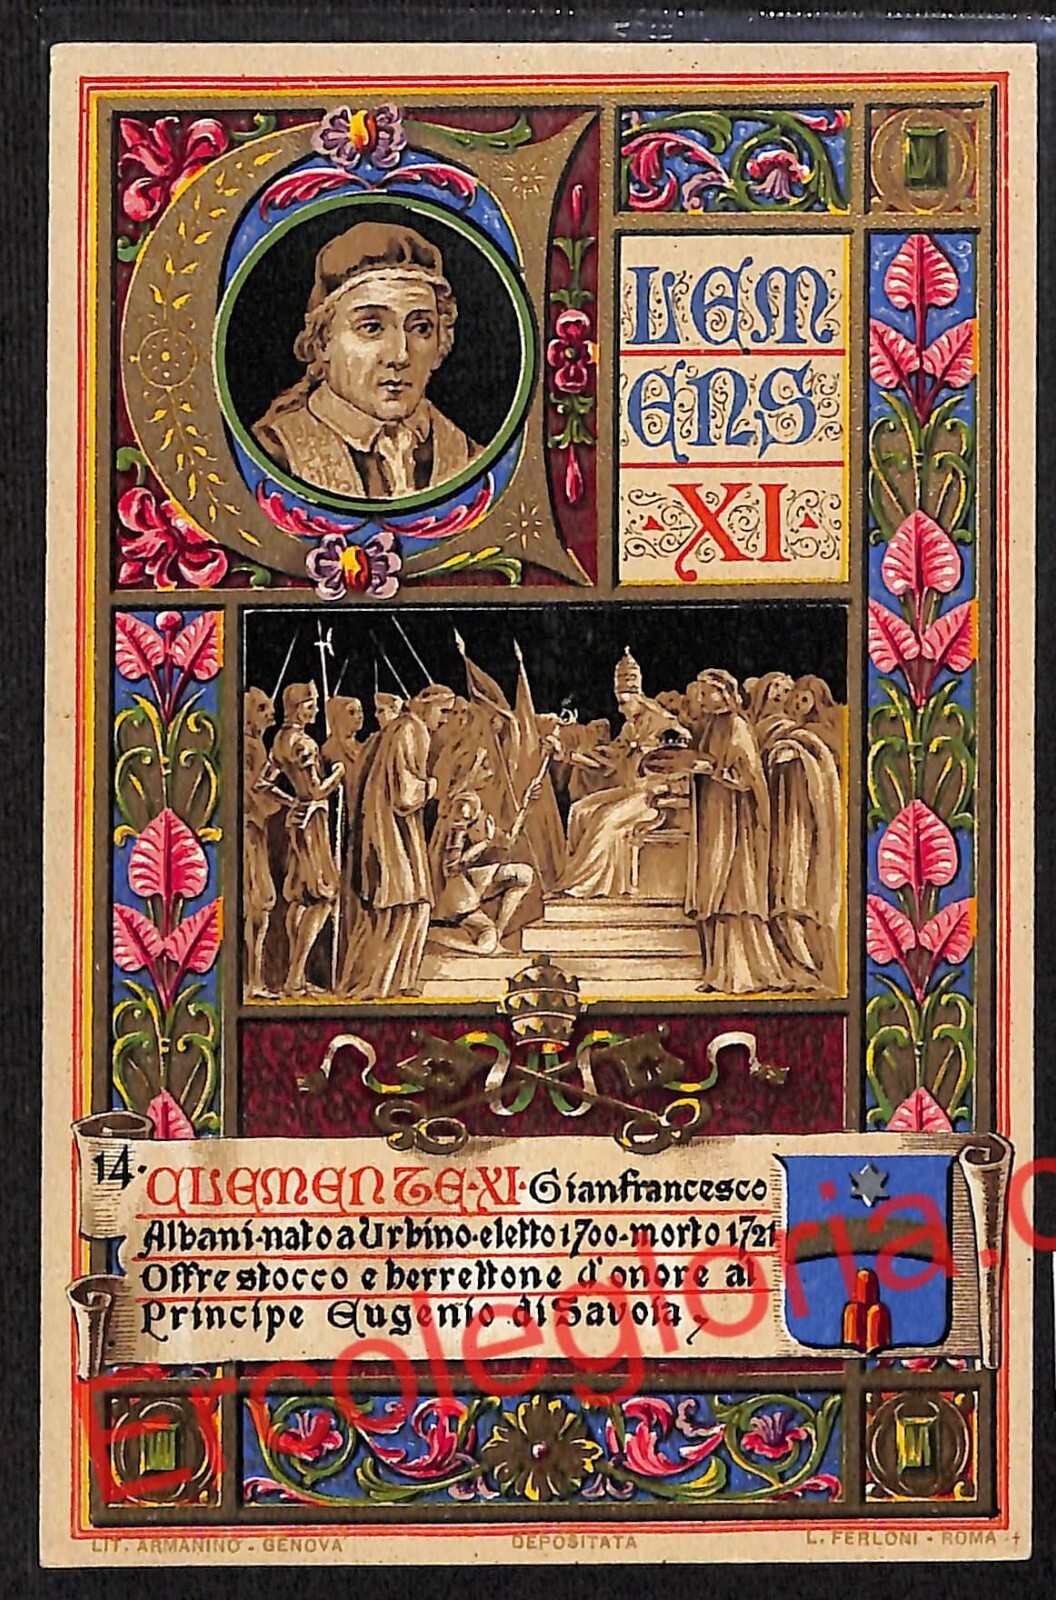 CLEM
ENS
·XI·
14· CLEMENTE·XI· Gianfrancesco
Albani·nato a Urbino·eletto 1700·morto 1721
Offre stocco e berrettone d'onore al
Principe Eugenio di Savoia,
LIT. ARMANINO - GENOVA DEPOSITATA L. FERLONI - ROMA
Ercolegloria.c